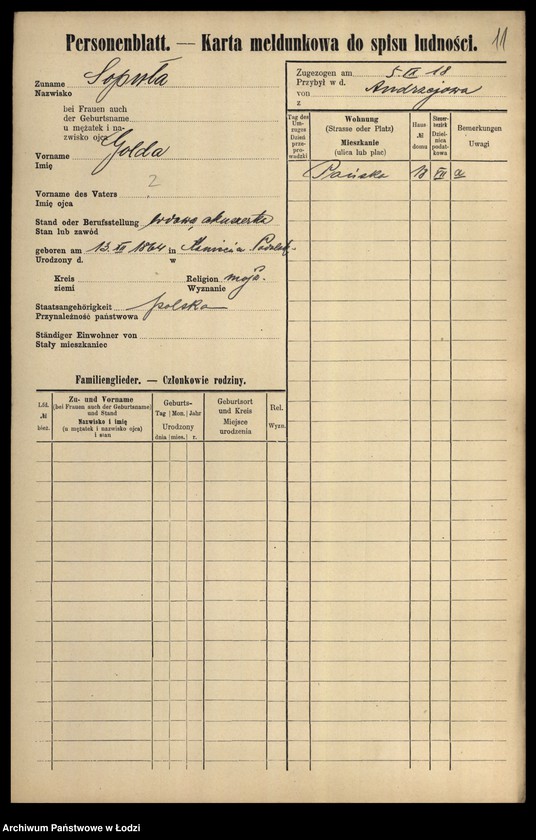 Personenblatt. — Karta meldunkowa do spisu ludności.
11
Zuname
Nazwisko
bei Frauen auch
der Geburtsname
u mężatek i na-
zwisko ojca
Vorname Golda
Imię
Vorname des Vaters 2
Imię ojca
Stand oder Berufsstellung wdowa, akuszerka
Stan lub zawód
geboren am 13. XII 1864 in
Urodzony d. w
Kreis Religion mojż.
ziemi Wyznanie
Staatsangehörigkeit polska
Przynależność państwowa
Ständiger Einwohner von
Stały mieszkaniec
Zugezogen am 5 IX 18
Przybył w d.
von Andrzejowa
z
Tag des Um-zuges Dzień prze-pro-wodzki
Wohnung (Strasse oder Platz) Mieszkanie (ulica lub plac)
Haus № domu
Steuer-bezirk Dziel-nica podat-kowa
Bemerkungen Uwagi
Pańska 18 VII
Familienglieder. — Członkowie rodziny.
Lfd. № bież.
Zu- und Vorname (bei Frauen auch der Geburtsname) und Stand Nazwisko i imię (u mężatek i nazwisko ojca) i stan
Geburts- Tag Mon. Jahr Urodzony dnia mies. r.
Geburtsort und Kreis Miejsce urodzenia
Rel. Wyzn.
Archiwum Państwowe w Łodzi